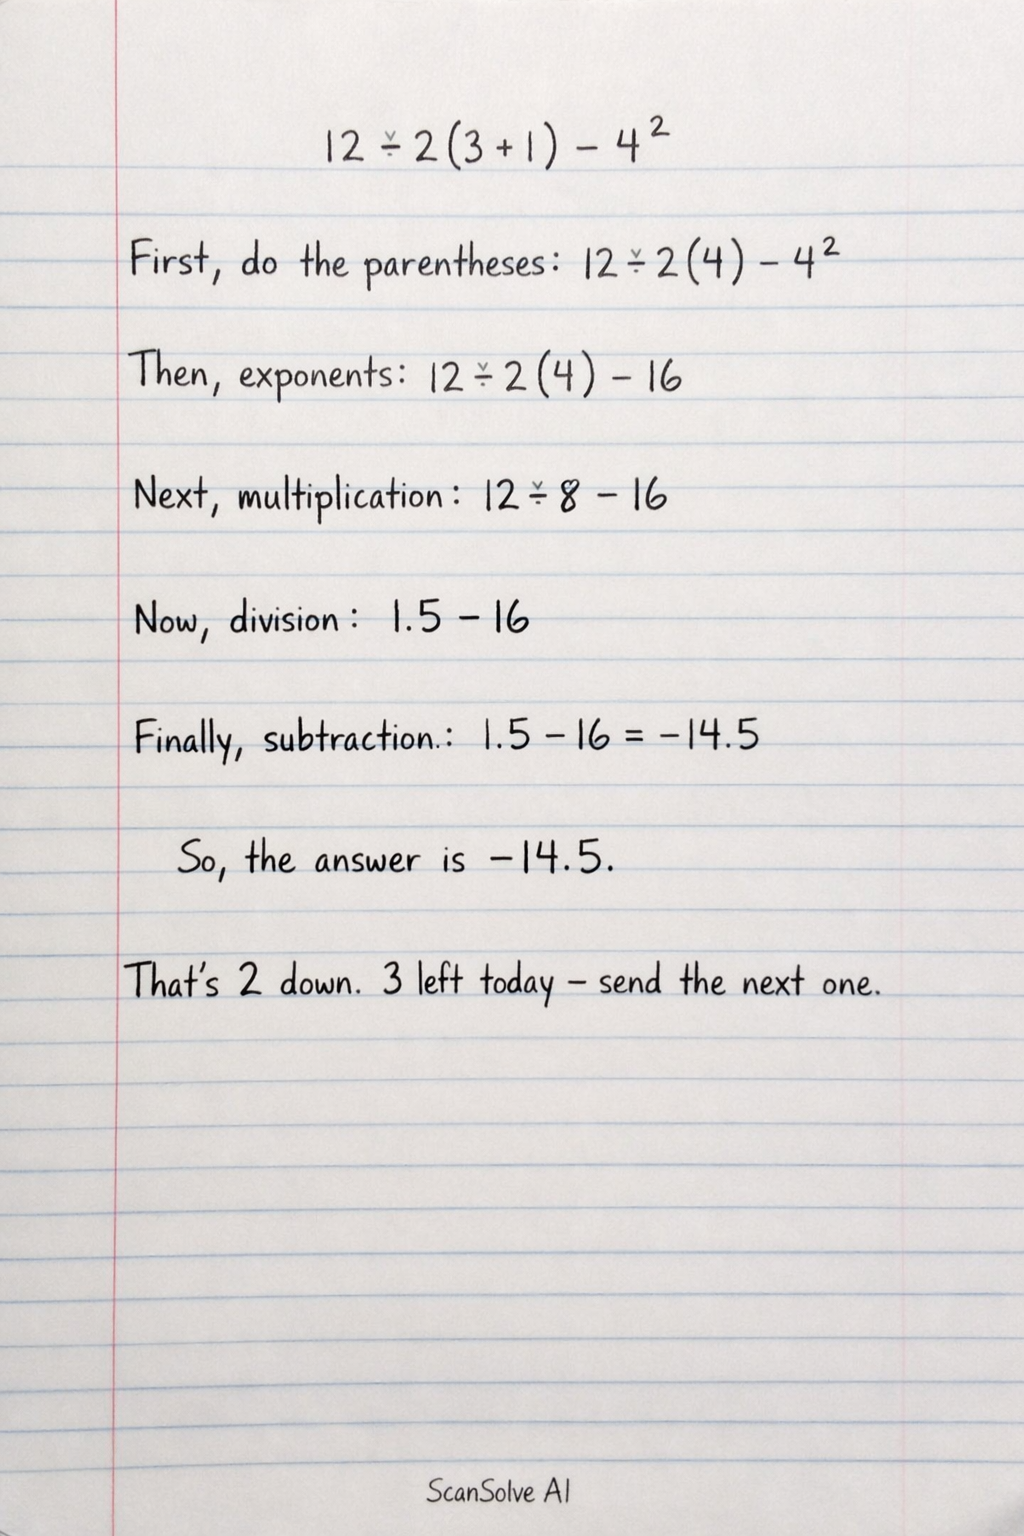 12 ÷ 2(3 + 1) - 4²
First, do the parentheses: 12 ÷ 2(4) - 4²
Then, exponents: 12 ÷ 2(4) - 16
Next, multiplication: 12 ÷ 8 - 16
Now, division: 1.5 - 16
Finally, subtraction.: 1.5 - 16 = -14.5
So, the answer is -14.5.
That's 2 down. 3 left today – send the next one.
ScanSolve AI